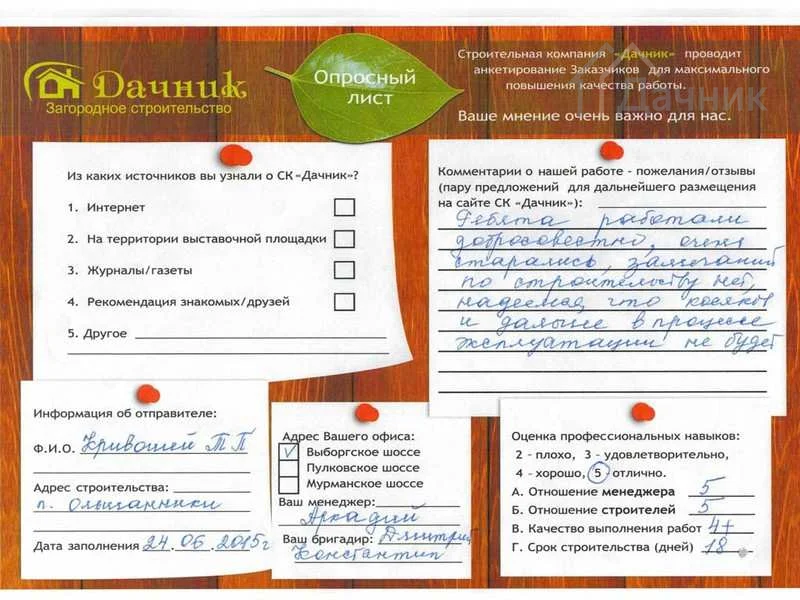 Дачник
Загородное строительство
Опросный
лист
Строительная компания «Дачник» проводит
анкетирование Заказчиков для максимального
повышения качества работы.
Ваше мнение очень важно для нас.
Дачник
Из каких источников вы узнали о СК «Дачник»?
1. Интернет
2. На территории выставочной площадки
3. Журналы/газеты
4. Рекомендация знакомых/друзей
5. Другое
Комментарии о нашей работе - пожелания/отзывы
(пару предложений для дальнейшего размещения
на сайте СК «Дачник»):
Ребята работали
добросовестно, очень
старались, замечаний
по строительству нет,
надеемся, что косяков
и дальше в процессе
эксплуатации не будет
Информация об отправителе:
Ф.И.О. Кривошей Т П
Адрес строительства:
п. Ольшаники
Дата заполнения 24.06.2015г
Адрес Вашего офиса:
Выборгское шоссе
Пулковское шоссе
Мурманское шоссе
Ваш менеджер:
Аркадий
Ваш бригадир: Дмитрий
Константин
Оценка профессиональных навыков:
2 - плохо, 3 - удовлетворительно,
4 - хорошо, 5 - отлично.
А. Отношение менеджера 5
Б. Отношение строителей 5
В. Качество выполнения работ 4+
Г. Срок строительства (дней) 18